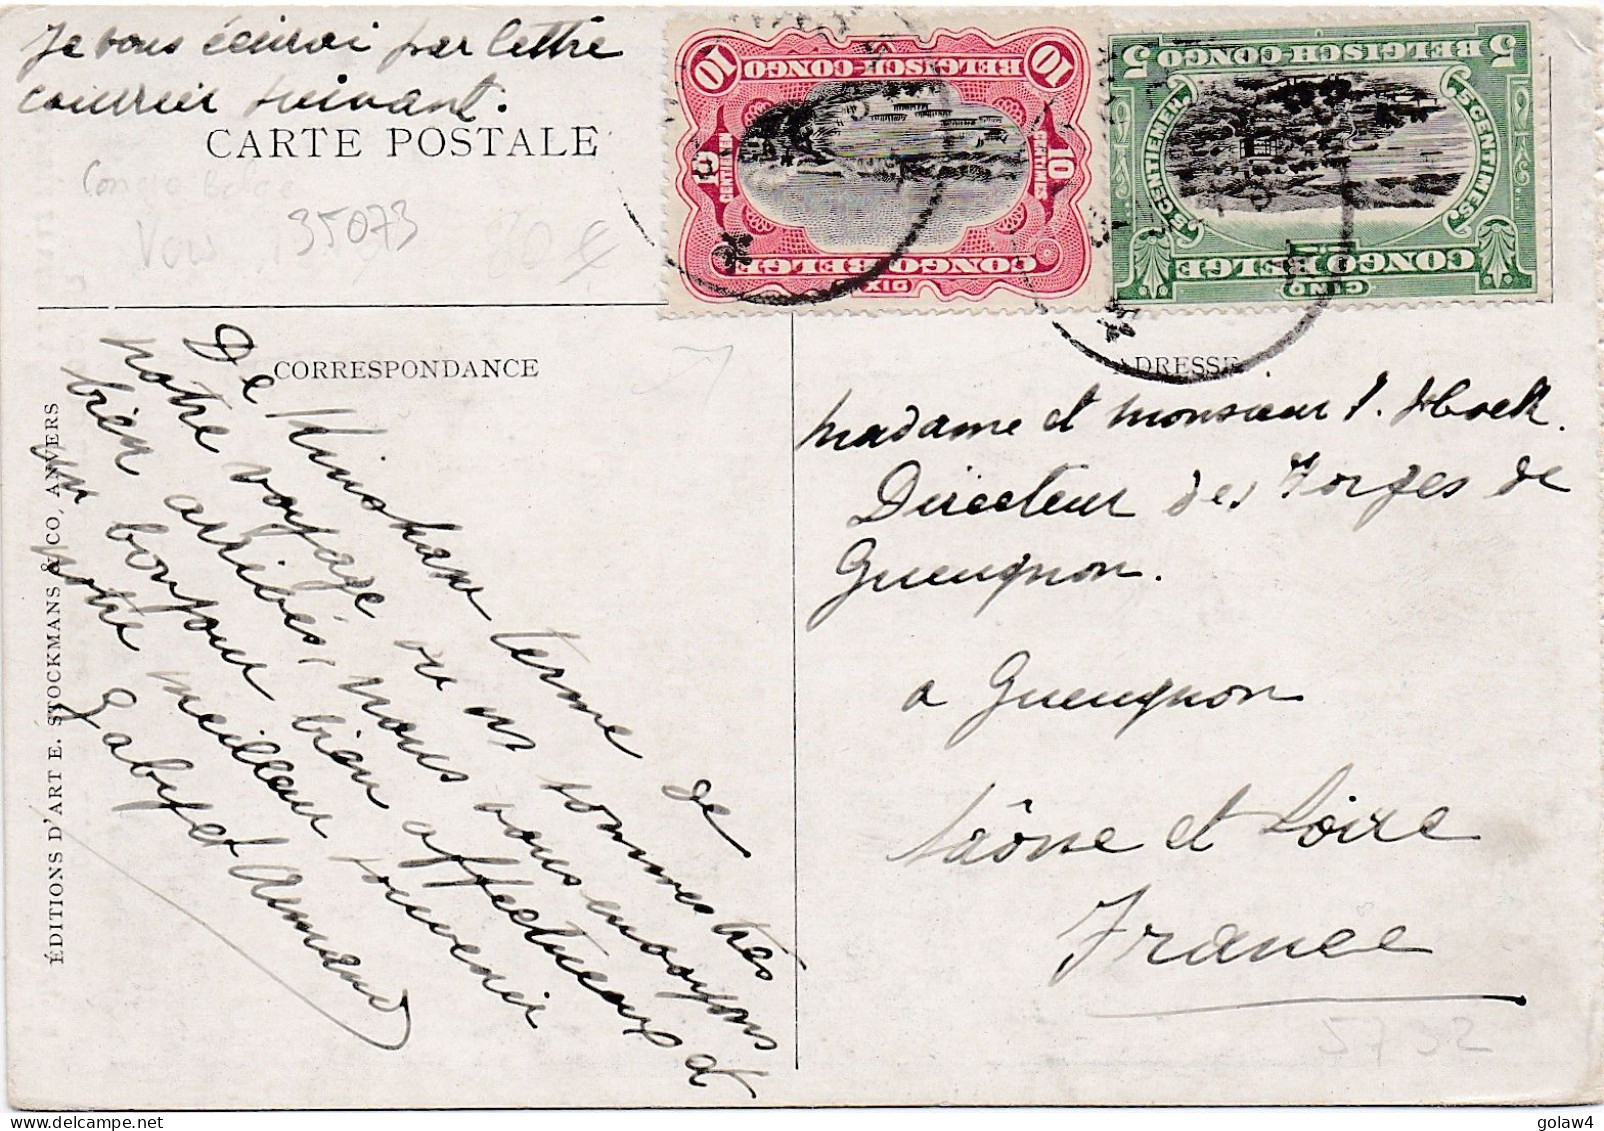 Je vous écirai par lettre
courrier suivant.
CARTE POSTALE
Congo Belge
35073
80 €
10 BELGISCH-CONGO 10
10 CENTIEMEN
10 CENTIMES
CONGO BELGE
DIX
5 BELGISCH-CONGO 5
5 CENTIEMEN.
5 CENTIMES.
CONGO BELGE
CINQ
CORRESPONDANCE
De Kinshasa terme de
notre voyage ou ns sommes très
bien arrivés, nous vous envoyons
un bonjour bien affectueux et
notre meilleur souvenir
Gaby et Armand
ÉDITIONS D'ART E. STOCKMANS & CO, ANVERS
ADRESSE
Madame et Monsieur
Directeur des Forges de
Gueugnon.
a Gueugnon
Saône et Loire
France
5732
golaw4